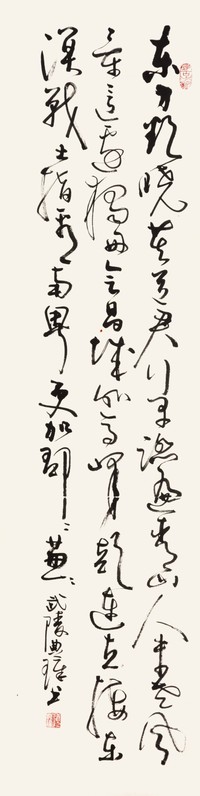 东方欲晓莫道君行早踏遍青山人未老风
景这边独好会昌城外高峰颠连直接东
溟战士指看南粤更加郁郁葱葱武陵典璋书